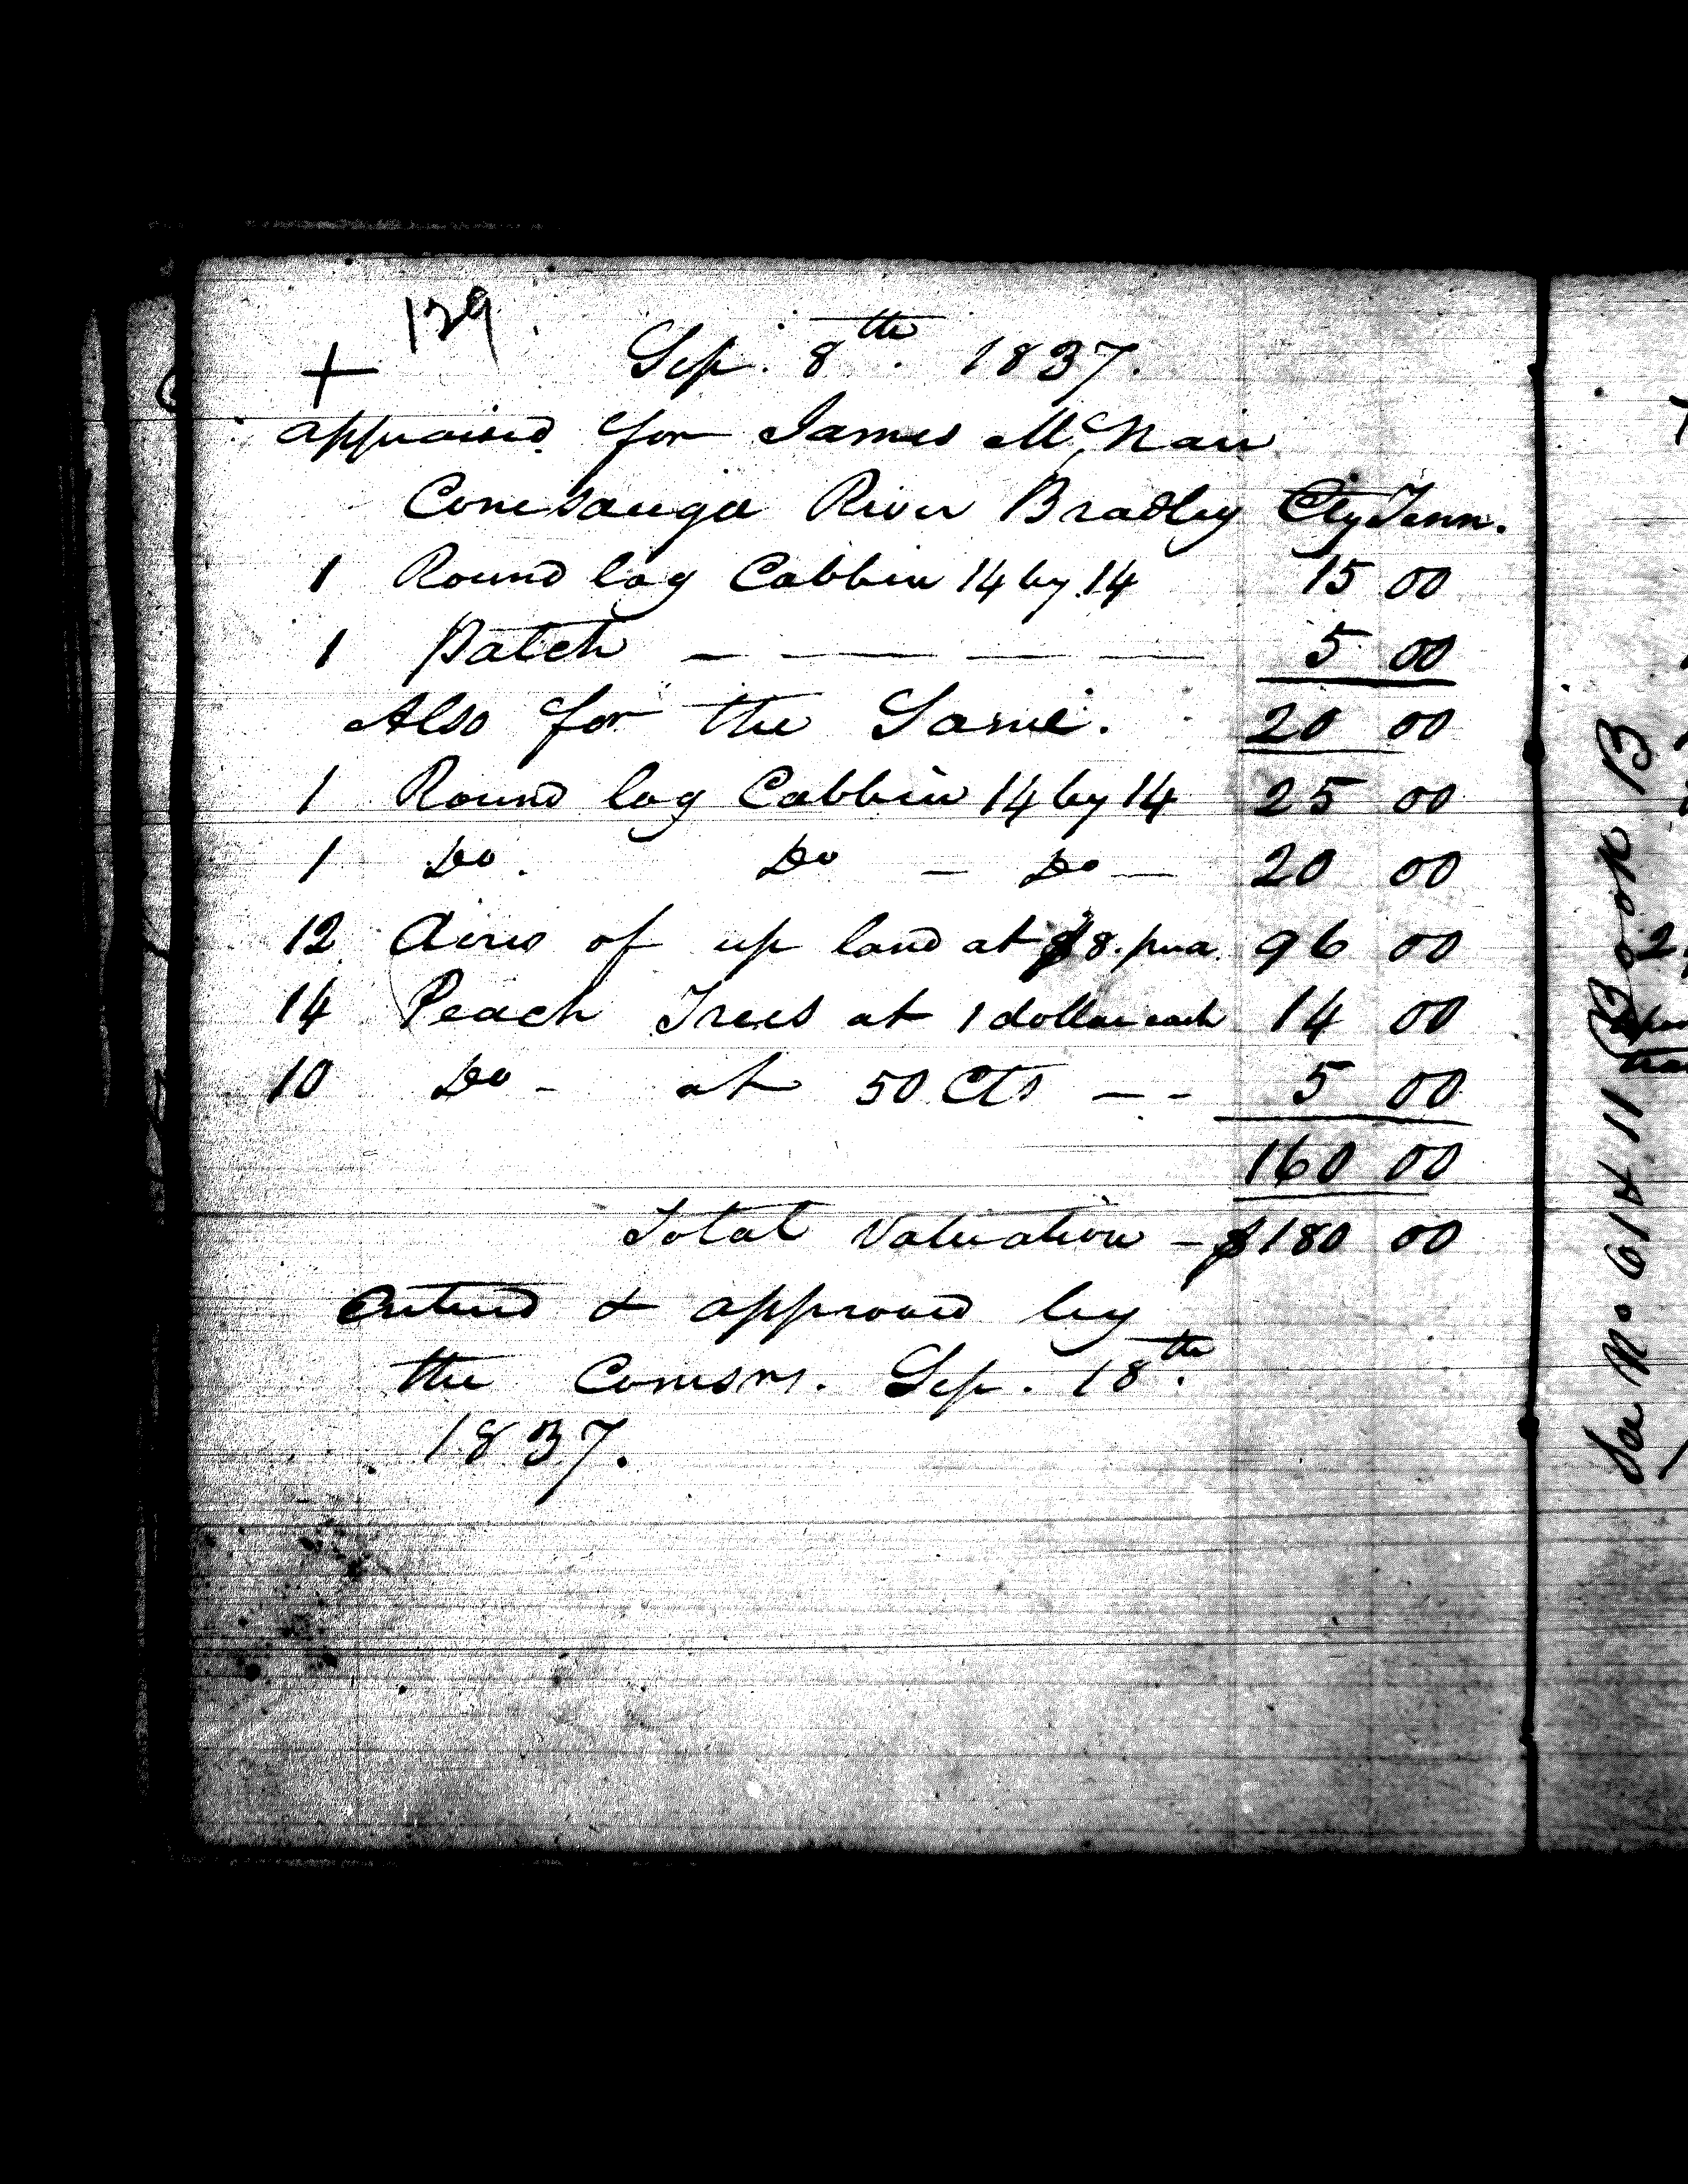 129
+ Sep. 8th. 1837.
appraised for James McNair
Conesauga River Bradley Cty Tenn.
1 Round log Cabbin 14 by 14 15 00
1 Patch — — — — 5 00
Also for the Same. 20 00
1 Round log Cabbin 14 by 14 25 00
1 Do. Do — Do — 20 00
12 Acres of up land at $8. pr a. 96 00
14 Peach Trees at 1 dollar each 14 00
10 Do - at 50 Cts - - 5 00
160 00
Total Valuation - $180 00
Entered & approved by
the Comsrs. Sep. 18th.
1837.
See No 614 11 Book B